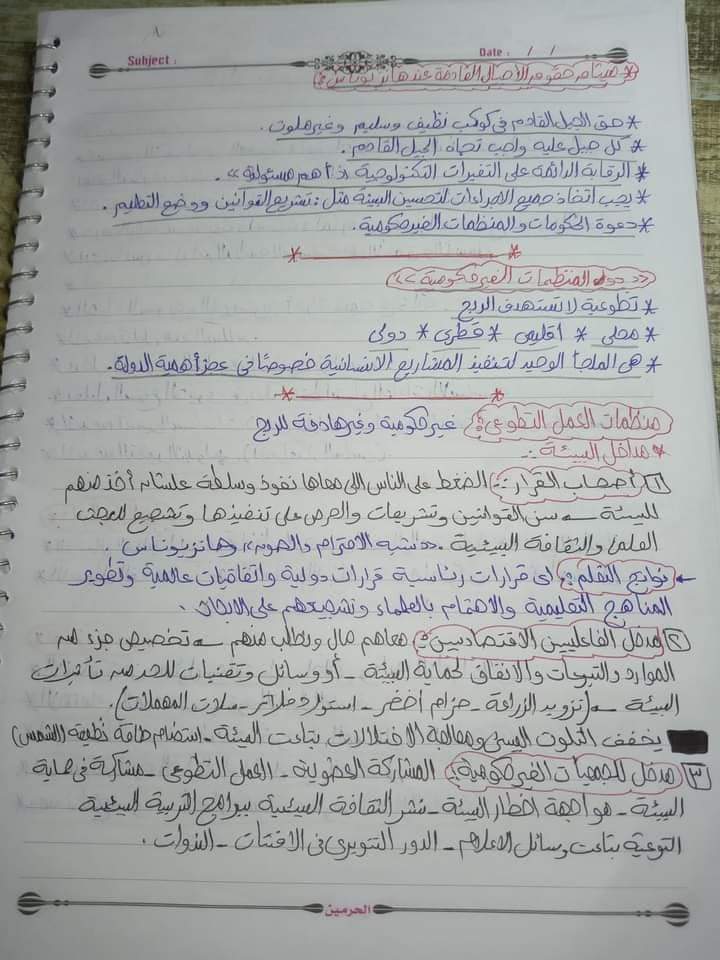 ٨
Subject :
Date : / /
* ميثاق حقوق الأجيال القادمة عند هانز يوناس :
* حق الجيل القادم فى كوكب نظيف وسليم وغير ملوث.
* كل جيل عليه واجب تجاه الجيل القادم.
* الرقابة الدائمة على التغيرات التكنولوجية << أهم مسئولية >>
* يجب اتخاذ جميع الاجراءات لتحسين البيئة مثل : تشريع القوانين ووضع التعليم.
* دعوة الحكومات والمنظمات الغير حكومية.
* *
<< دور المنظمات الغير حكومية >>
* تطوعية لا تستهدف الربح
* محلى * أقليمى * قطرى * دولى
* هى الملجأ الوحيد لتنفيذ المشاريع الانسانية خصوصًا فى عجز أهمية الدولة.
* *
منظمات العمل التطوعى : غير حكومية وغير هادفة للربح
* مداخل البيئة :-
١) أصحاب القرار :- الضغط على الناس اللى معاها نفوذ وسلطة علشان أخد منهم
للبيئة ← سن القوانين وتشريعات والحرص على تنفيذها وتخصيص للبحث
العلمى والثقافة البيئية . << شبه الاحترام والصون >> وهانز يوناس .
← نواتج التعلم : الى قرارات رئاسية قرارات دولية واتفاقيات عالمية وتطوير
المناهج التعليمية والاهتمام بالعلماء وتشجيعهم على الابحاث .
٢) مدخل الفاعليين الاقتصاديين : معاهم مال ويطلب منهم ← تخصيص جزء من
الموارد والتبرعات والانفاق لحماية البيئة - أو وسائل وتقنيات للحد من تأثيرات
البيئة ← (تزويد الزراعة - حزام أخضر - استيراد فلاتر - سلات المهملات).
يخفف التلوث البيئى ومعالجة الاختلالات بتاعت البيئة - استخدام طاقة نظيفة (الشمس)
٣) مدخل للجمعيات الغير حكومية : المشاركة العضوية - العمل التطوعى - مشاركة فى حماية
البيئة - مواجهة اخطار البيئة - نشر الثقافة البيئية ببرامج التربية البيئية
التوعية بتاعت وسائل الاعلام - الدور التنويرى فى - الندوات .
الحرمين